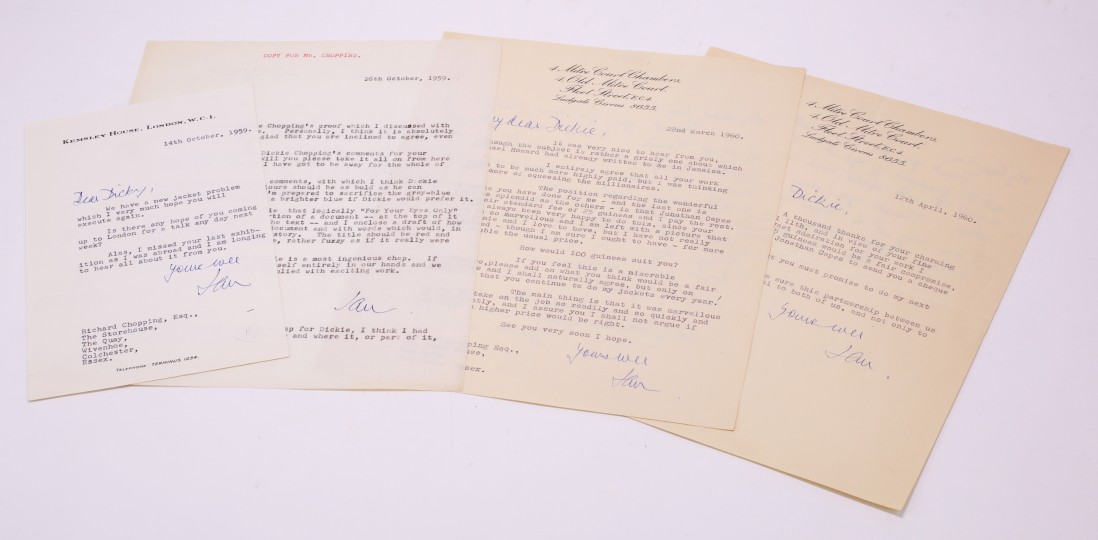 KEMSLEY HOUSE, LONDON, W.C.1.
14th October, 1959.
Dear Dicky,
We have a new jacket problem
which I very much hope you will
execute again.
Is there any hope of you coming
up to London for a talk any day next
week?
Alas, I missed your last exhib-
ition as I was abroad and I am longing
to hear all about it from you.
Yours ever
Ian
Richard Chopping, Esq.,
The Storehouse,
The Quay,
Wivenhoe,
Colchester,
Essex.
TELEPHONE TERMINUS 1234.
COPY FOR MR. CHOPPING.
26th October, 1959.
Chopping's proof which I discussed with
Personally, I think it is absolutely
glad that you are inclined to agree, even
Dickie Chopping's comments for your
will you please take it all on from here
I have got to be away for the whole of
comments, with which I think Dickie
ours should be as bold as he can
'm prepared to sacrifice the grey-blue
a brighter blue if Dickie would prefer it.
that logically "For Your Eyes Only"
tion of a document -- at the top of it
the text -- and I enclose a draft of how
document and with words which would, in
story. The title should be red and
rather fuzzy as if it really were
is a most ingenious chap. If
self entirely in our hands and we
plied with exciting work.
Ian
ap for Dickie, I think I had
and where it, or part of it,
4, Mitre Court Chambers,
4, Old Mitre Court,
Fleet Street, E.C.4.
Ludgate Circus 8655.
22nd March 1960.
y dear Dickie,
It was very nice to hear from you,
though the subject is rather a grisly one about which
Howard had already written to me in Jamaica.
I entirely agree that all your work
to be much more highly paid, but I was thinking
more of squeezing the millionaires.
The position regarding the wonderful
you have done for me - and the last one is
splendid as the others - is that Jonathan Capes
their standard fee of 25 guineas and I pay the rest.
always been very happy to do this, since your
so marvellous and I am left with a picture that
and I love to have, but I have not really
- though I am sure I ought to have - for more
the usual price.
How would 100 guineas suit you?
If you feel this is a miserable
please add on what you think would be a fair
and I shall naturally agree, but only on
that you continue to do my jackets every year!
The main thing is that it was marvellous
take on the job so readily and so quickly and
and I assure you I shall not argue if
higher price would be right.
See you very soon I hope.
Yours ever
Ian
ping Esq.,
ex.
4, Mitre Court Chambers,
4, Old Mitre Court,
Fleet Street, E.C.4.
Ludgate Circus 8655.
12th April, 1960.
Dickie,
A thousand thanks for your charming
and in view of your fine
Australian for your fine
guineas would be a fair compromise,
Jonathan Capes to send you a cheque
you must promise to do my next
sure this partnership between us
to both of us, and not only to
Yours ever
Ian.